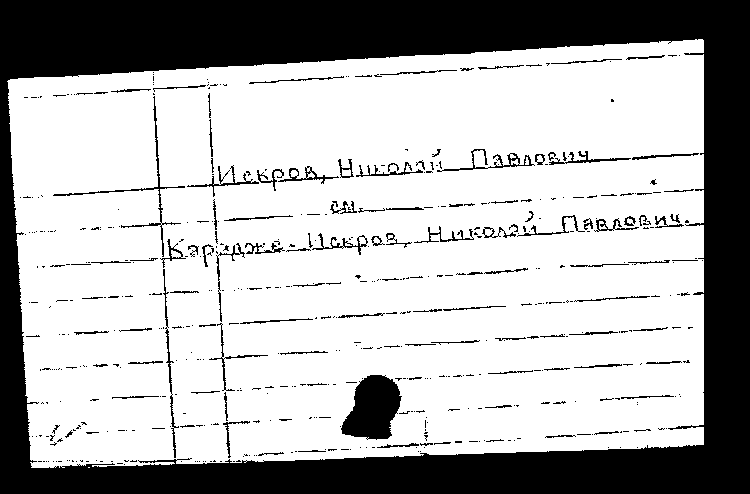 Искров, Николай Павлович
см.
Карадже-Искров, Николай Павлович.